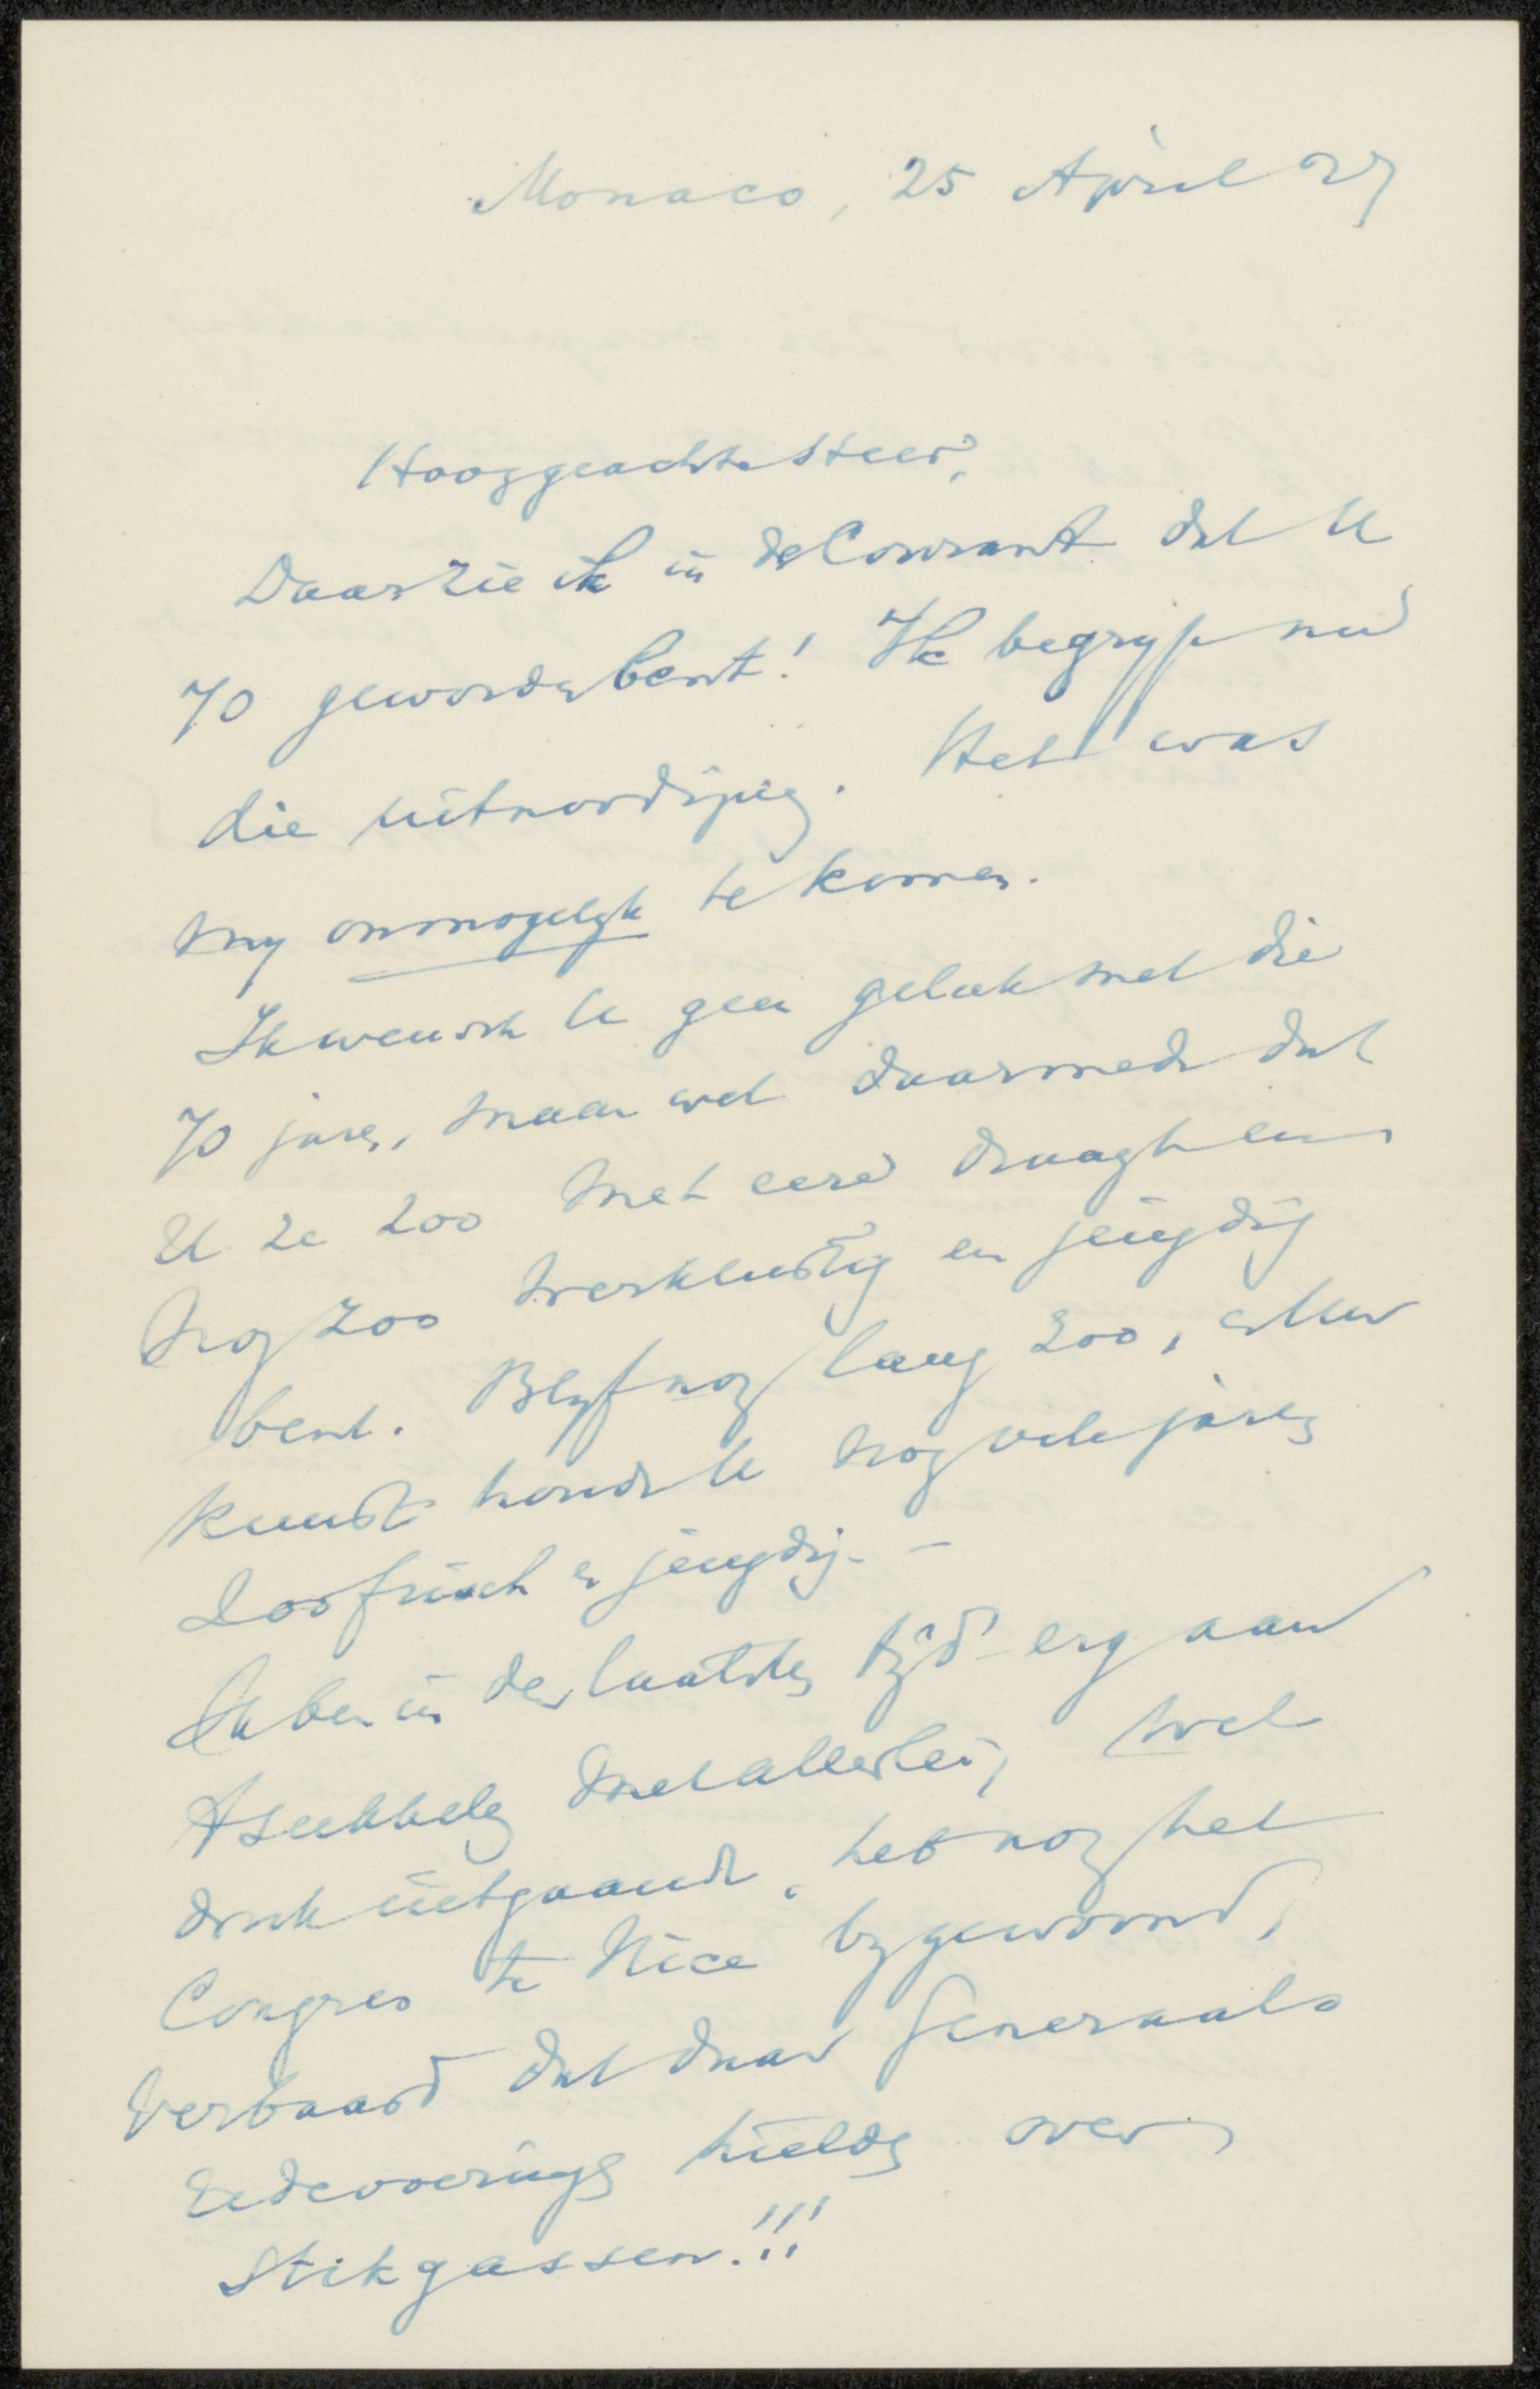 Monaco, 25 April 27
Hooggeachte Heer,
Daar zie ik in de Courant dat U
70 geworden bent! Ik begryp nu
die uitnoodiging. Het was
my onmogelyk te komen.
Ik wensch U geen geluk met die
70 jaren, maar wel daarmede dat
U ze zoo met eere draagt en
nog zoo werklustig en jeugdig
bent. Blyf nog lang zoo,
kunst houde U nog vele jaren
zoo frisch en jeugdig. -
Ik ben in den laatsten tyd erg aan
't sukkelen met allerlei, wel
druk uitgaande, heb nog het
Congres te Nice bygewoond,
verbaasd dat daar Generaals
redevoeringen hielden over
Stikgassen.!!!